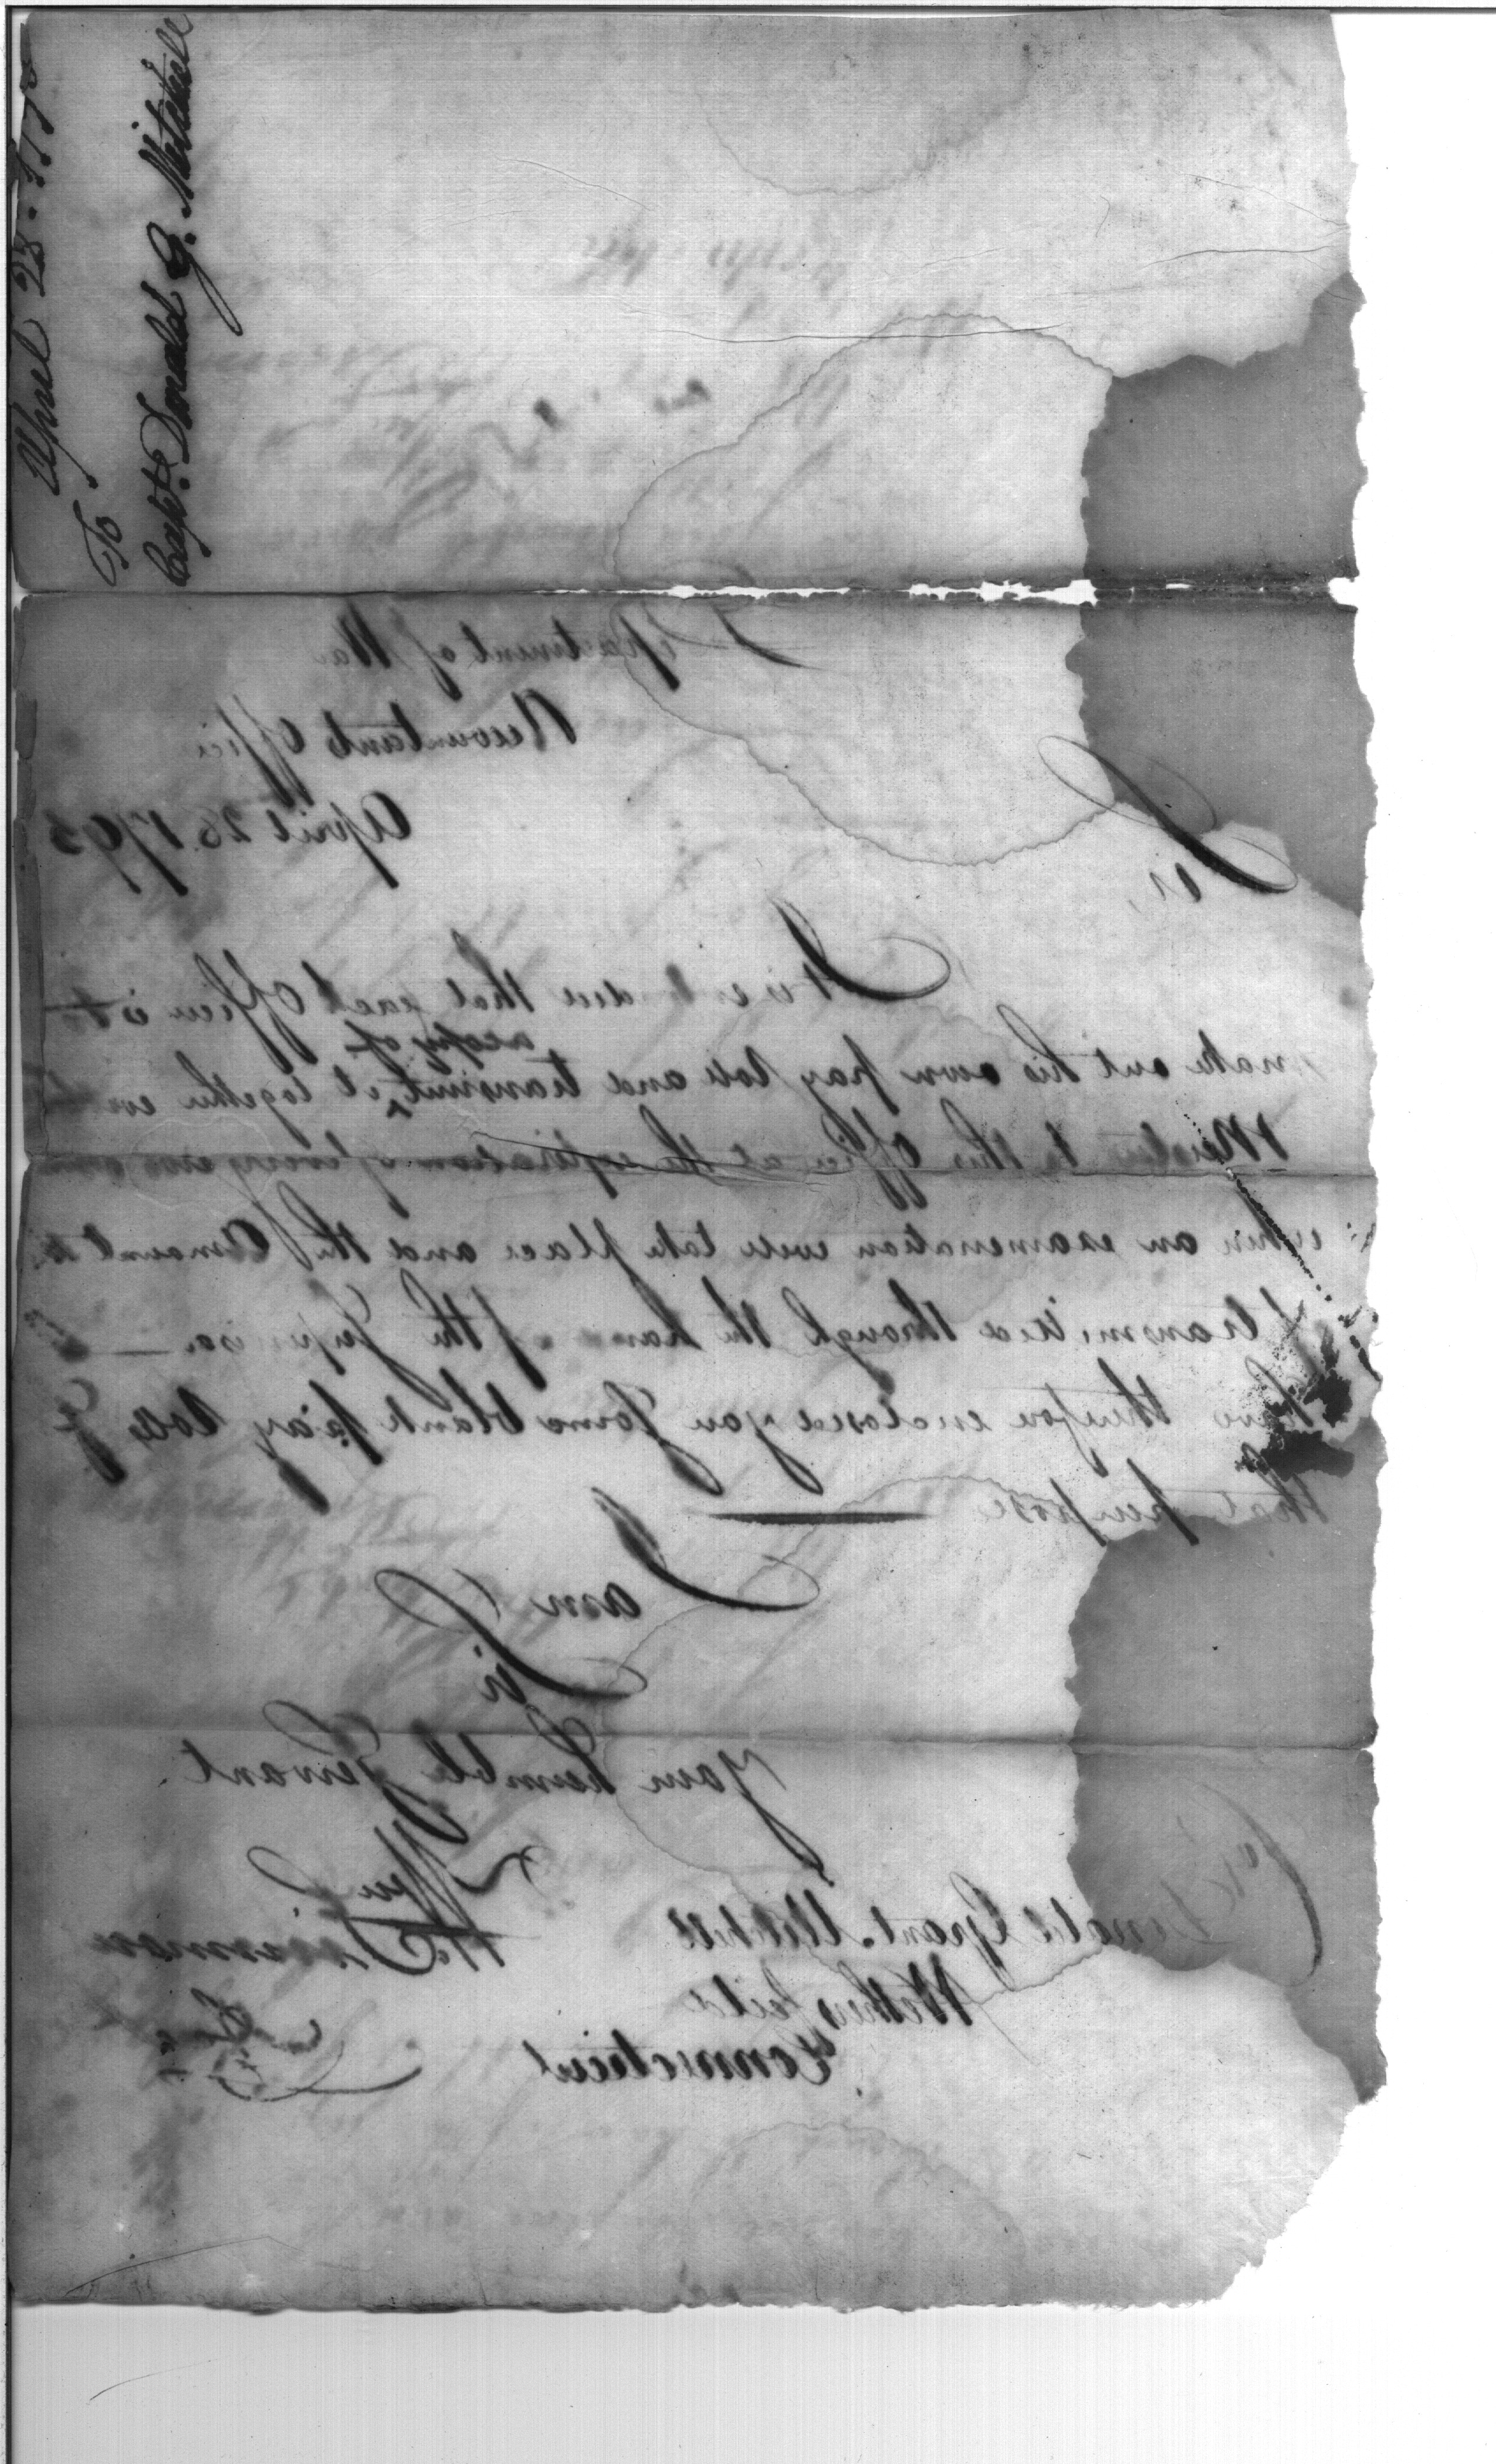 April 28-
To
Capt. Donald G. Mitchell
Department of War
Accountants Office
April 28. 1793
Sir,
It is that each Officer is to
make out his own pay Roll and transmit
a copy of
it together with
Muster to this Office at the expiration of every
when an examination will take place and the Amount
transmitted through the hands of the
have therefore enclosed you some blank pay Rolls
that purpose
I am
Sir
Your humble Servant
Capt Donald Grant Mitchell
Wethersfield
Connecticut